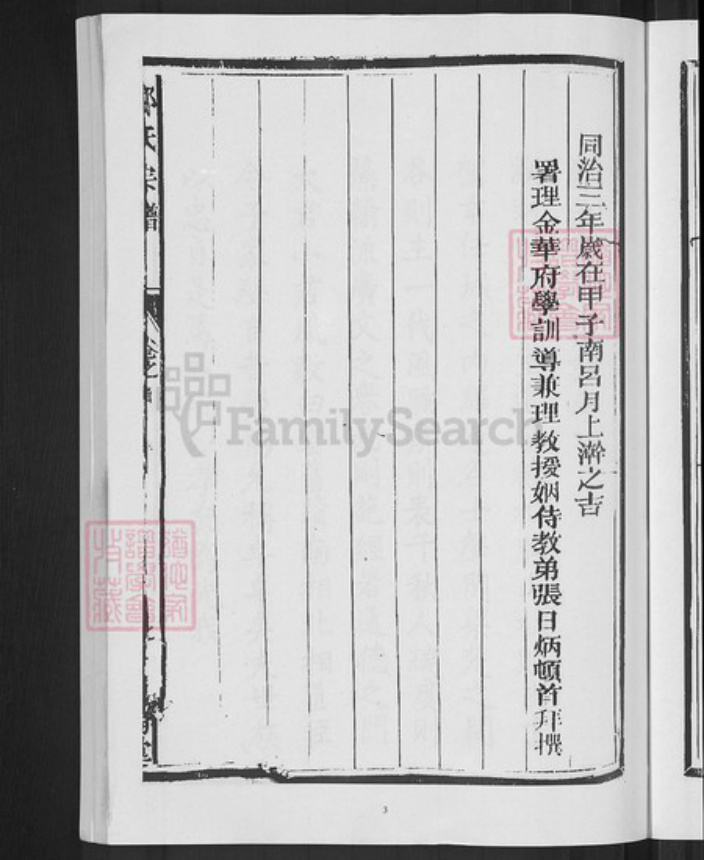 同治三年歲在甲子南呂月上澣之吉
署理金華府學訓導兼理教授姻侍教弟張日炳頓首拜撰
氏宗譜
卷之
FamilySearch
3